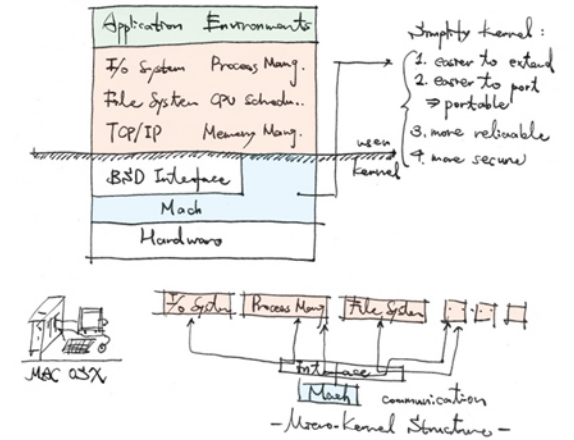 Application Environments
I/o System Process Mang.
File System CPU Schedu..
TCP/IP Memory Mang.
BSD Interface
Mach
Hardware
user
kernel
Simplify kernel :
1. easier to extend
2. easier to port
⇒ portable
3. more reliable
4. more secure
I/o System
Process Mang
File System
Interface
Mach
communication
- Micro-Kernel Structure -
MAC OSX